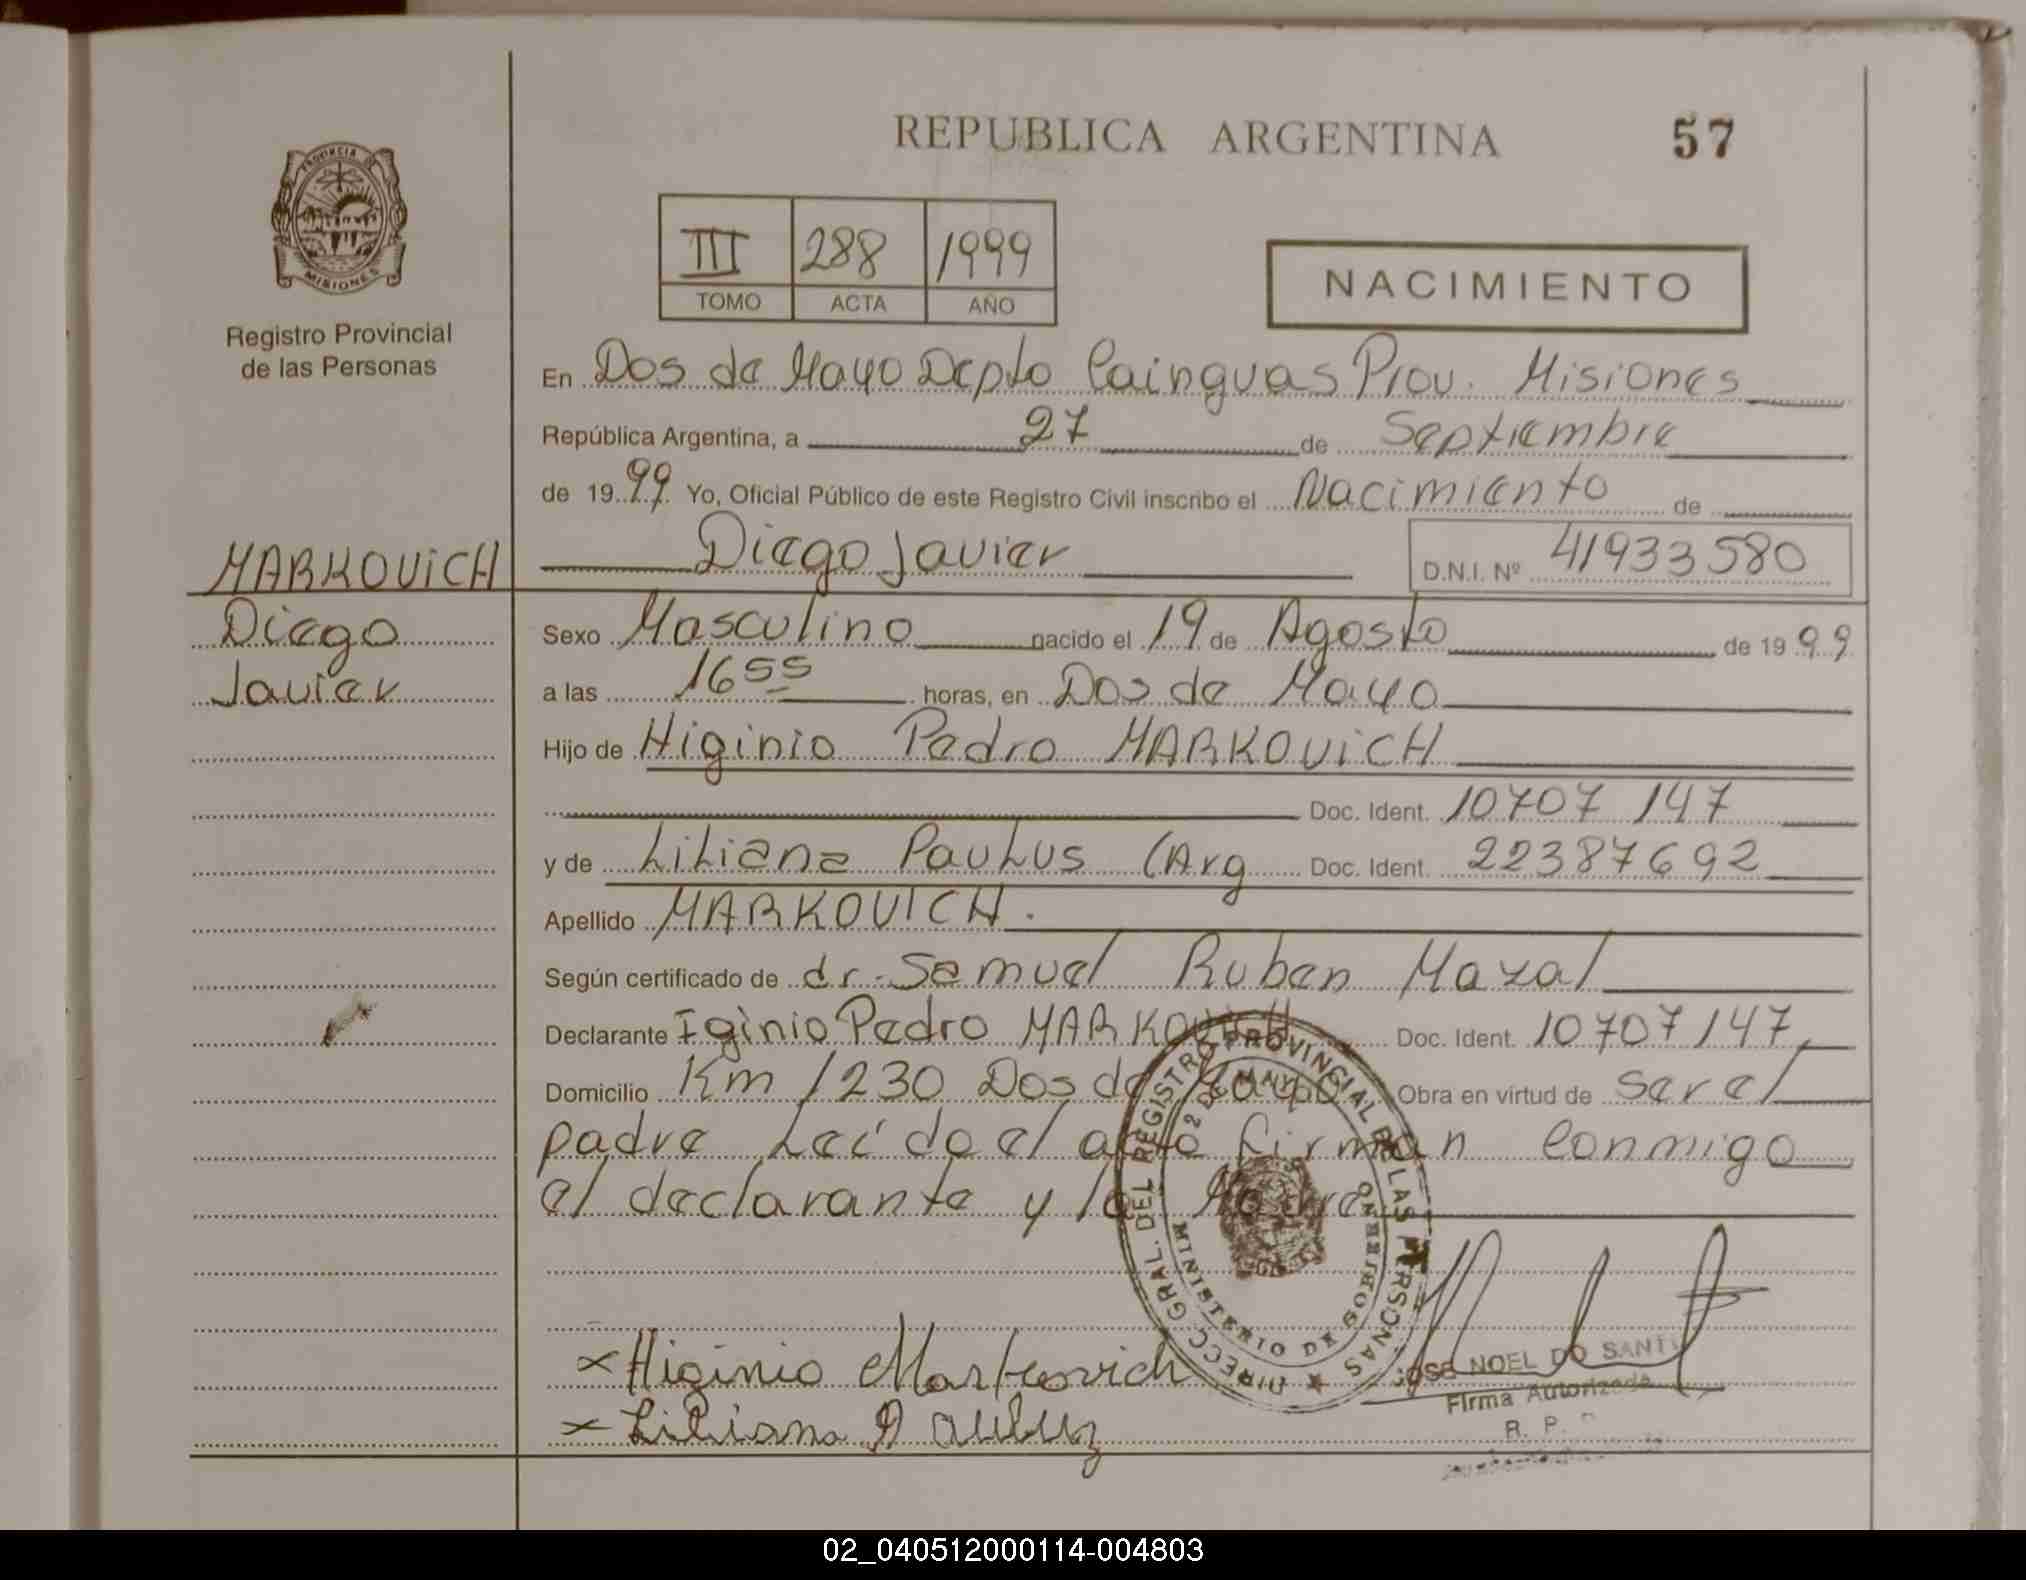 REPUBLICA ARGENTINA 57
PROVINCIA DE
MISIONES
Registro Provincial
de las Personas
III 288 1999
TOMO ACTA AÑO
NACIMIENTO
En Dos de Mayo Depto Cainguas Prov. Misiones
República Argentina, a 27 de Septiembre
de 1999 Yo, Oficial Público de este Registro Civil inscribo el Nacimiento de
MARKOVICH Diego Javier D.N.I. Nº 41933580
Diego Sexo Masculino nacido el 19 de Agosto de 1999
Javier a las 16 55 horas, en Dos de Mayo
Hijo de Higinio Pedro MARKOVICH
Doc. Ident. 10707 147
y de Liliana Paulus (Arg Doc. Ident. 22387692
Apellido MARKOVICH.
Según certificado de dr. Samuel Ruben Mazal
Declarante Iginio Pedro MARKOVICH Doc. Ident. 10707147,
Domicilio Km 1230 Dos de Mayo Obra en virtud de ser el
padre Leído el acto firman conmigo
el declarante y la Madre
DIRECC GRAL. DEL REGISTRO PROVINCIAL DE LAS PERSONAS
2 DE MAYO
MINISTERIO DE GOBIERNO
x Higinio Markovich
JOSE NOEL DO SANT
Firma Autorizada
x Liliana Pauluz
R. P.
02_040512000114-004803